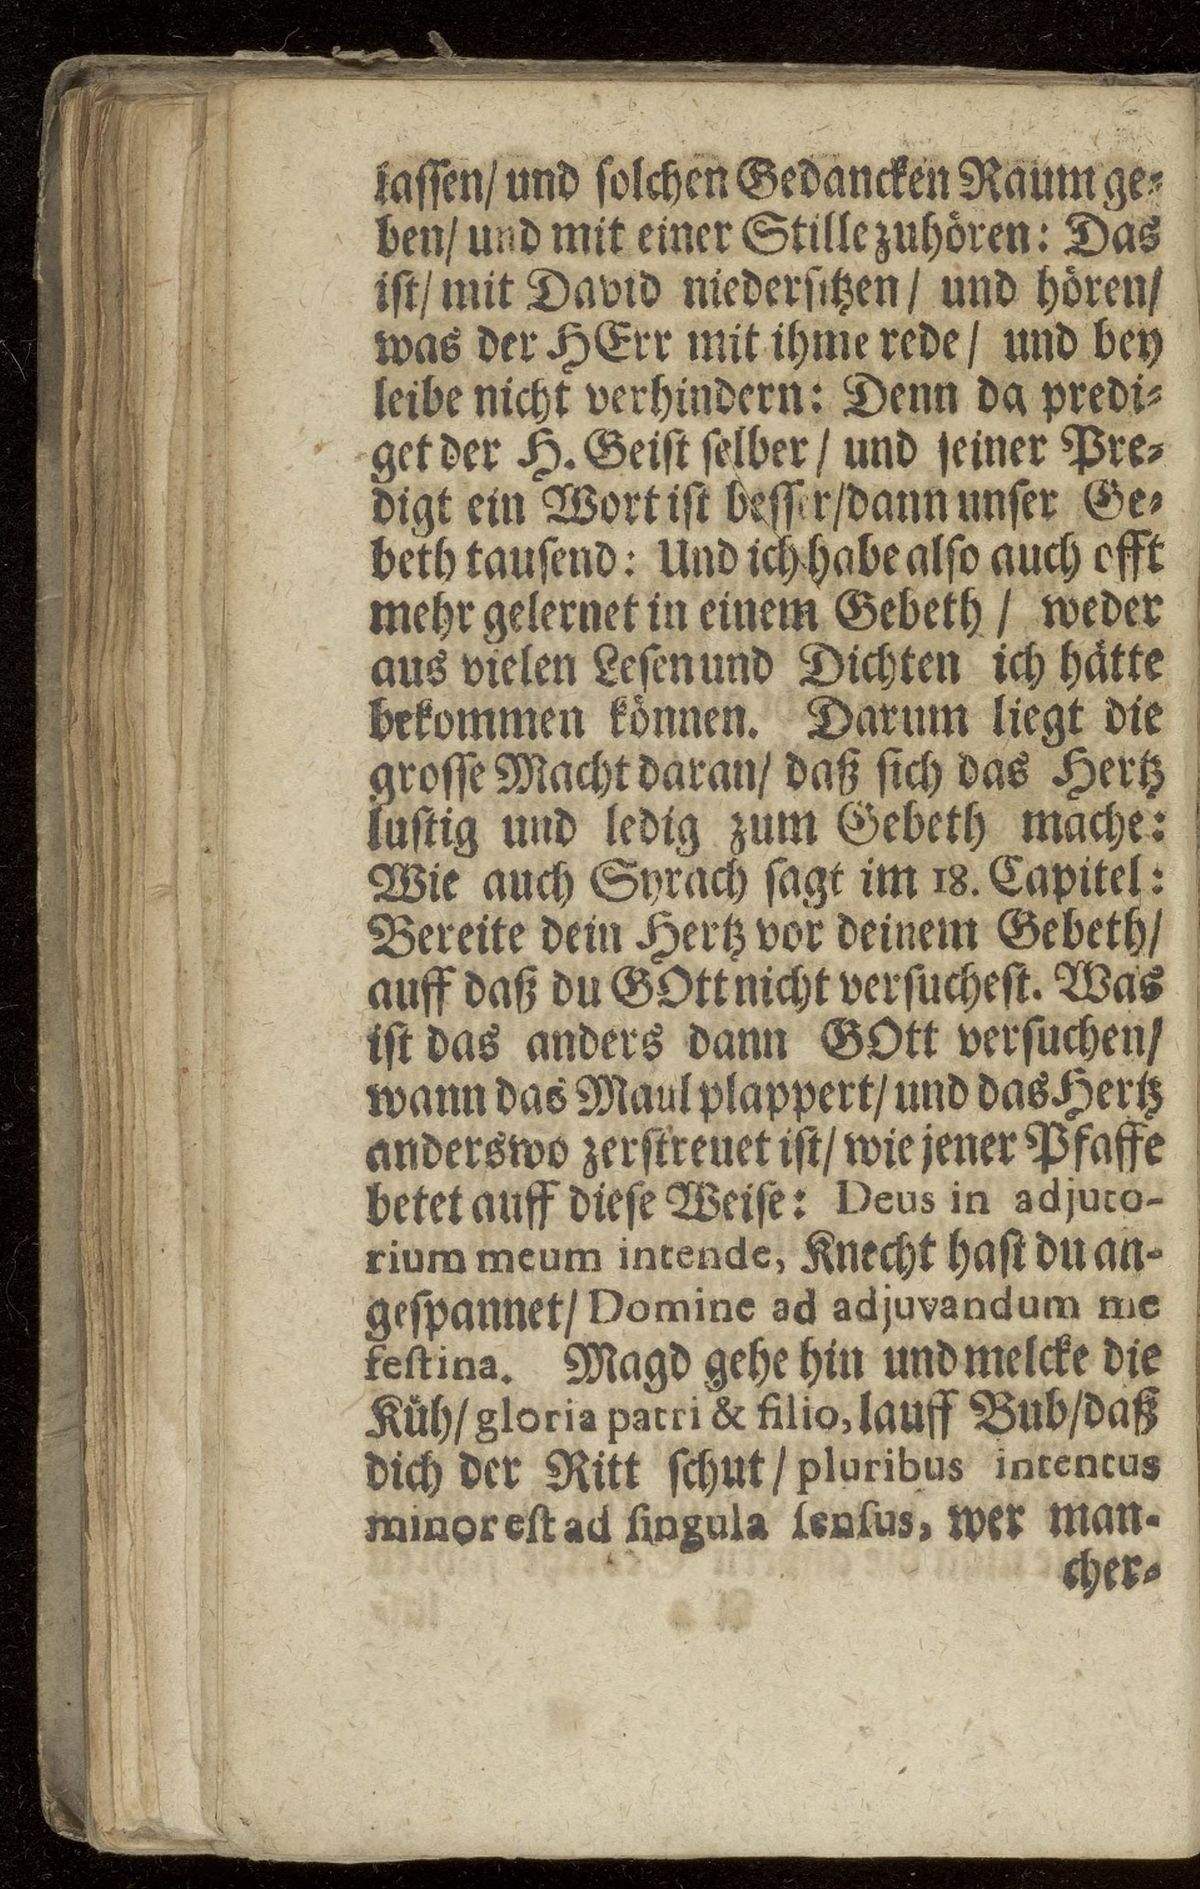 lassen/ und solchen Gedancken Raum ge-
ben/ und mit einer Stille zuhören: Das
ist/ mit David niedersitzen/ und hören/
was der HErr mit ihme rede/ und bey
leibe nicht verhindern: Denn da predi-
get der H. Geist selber/ und seiner Pre-
digt ein Wort ist besser/ dann unser Ge-
beth tausend: Und ich habe also auch offt
mehr gelernet in einem Gebeth/ weder
aus vielen Lesen und Dichten ich hätte
bekommen können. Darum liegt die
grosse Macht daran/ daß sich das Hertz
lustig und ledig zum Gebeth mache:
Wie auch Syrach sagt im 18. Capitel:
Bereite dein Hertz vor deinem Gebeth/
auff daß du GOtt nicht versuchest. Was
ist das anders dann GOtt versuchen/
wann das Maul plappert/ und das Hertz
anderswo zerstreuet ist/ wie jener Pfaffe
betet auff diese Weise: Deus in adjuto-
rium meum intende, Knecht hast du an-
gespannet/ Domine ad adjuvandum me
festina. Magd gehe hin und melcke die
Küh/ gloria patri & filio, lauff Bub/ daß
dich der Ritt schut/ pluribus intentus
minor est ad singula sensus, wer man-
cher-